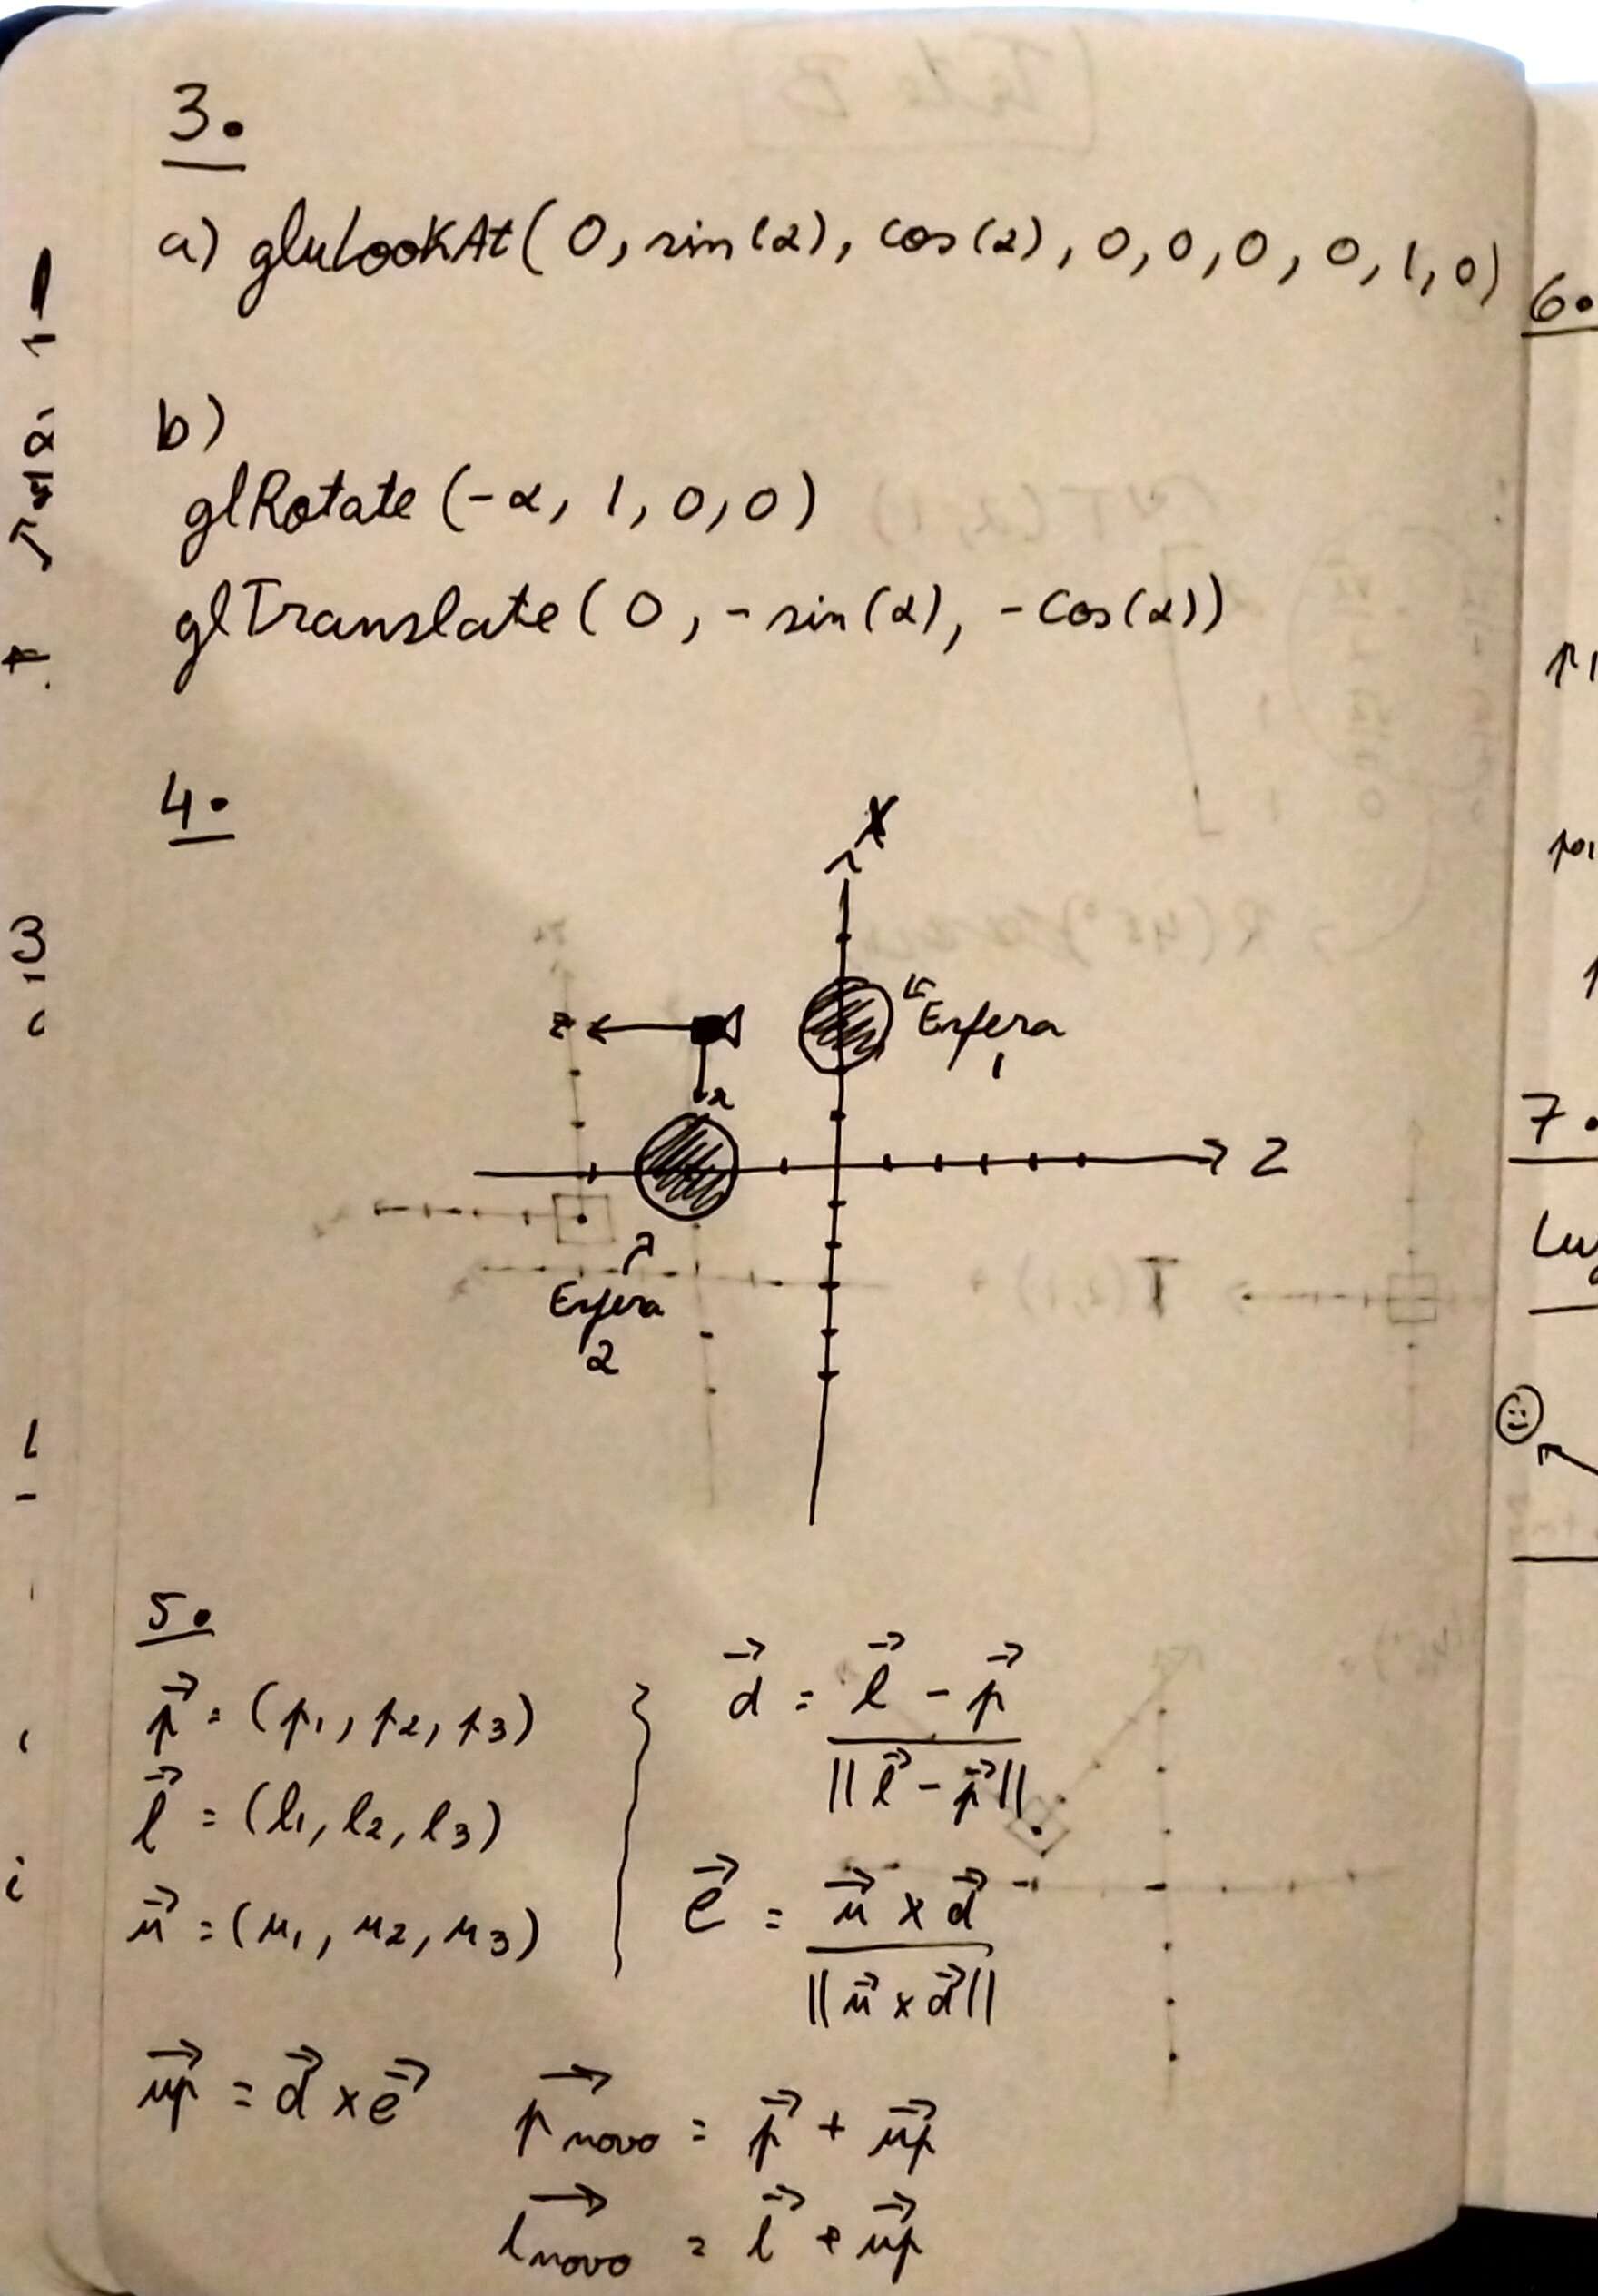 3.
a) gluLookAt( 0, sin(α), cos(α), 0, 0, 0, 0, 1, 0)
b)
glRotate (-α, 1, 0, 0)
glTranslate ( 0, - sin(α), - cos(α))
4.
X
z
Esfera
1
x
Z
Esfera
2
5.
p⃗ = (p1, p2, p3)
l⃗ = (l1, l2, l3)
u⃗ = (u1, u2, u3)
d⃗ = l⃗ - p⃗
||l⃗ - p⃗||
e⃗ = u⃗ x d⃗
||u⃗ x d⃗||
up⃗ = d⃗ x e⃗
p novo = p⃗ + up⃗
l novo = l⃗ + up⃗
6.
7.